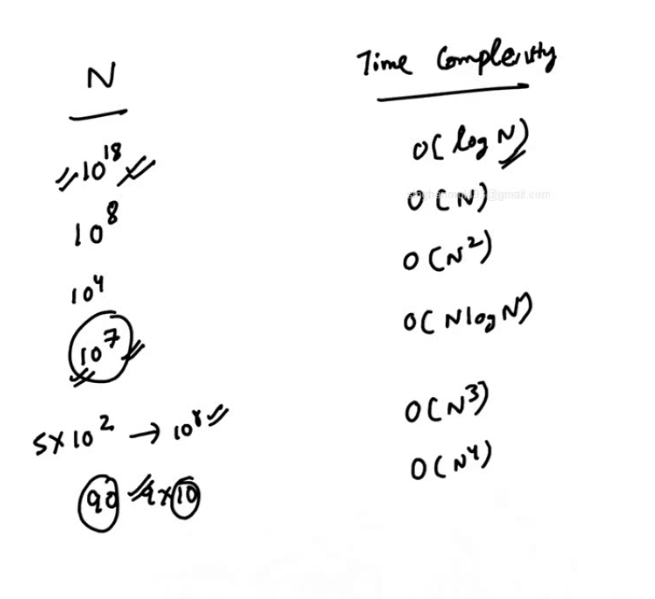 N Time Complexity
10^18 O(log N)
10^8 O(N)
10^4 O(N^2)
10^7 O(N log N)
5×10^2 → 10^8 O(N^3)
90 9×10 O(N^4)
@gmail.com